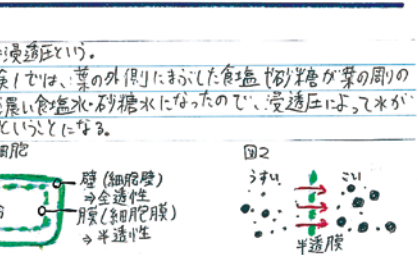 浸透圧という。
では、葉の外側にまぶした食塩や砂糖が葉の周りの
濃い食塩水・砂糖水になったので、浸透圧によって水が
ということになる。
細胞
図2
壁(細胞壁)
⇒全透性
膜(細胞膜)
⇒半透性
うすい
こい
半透膜